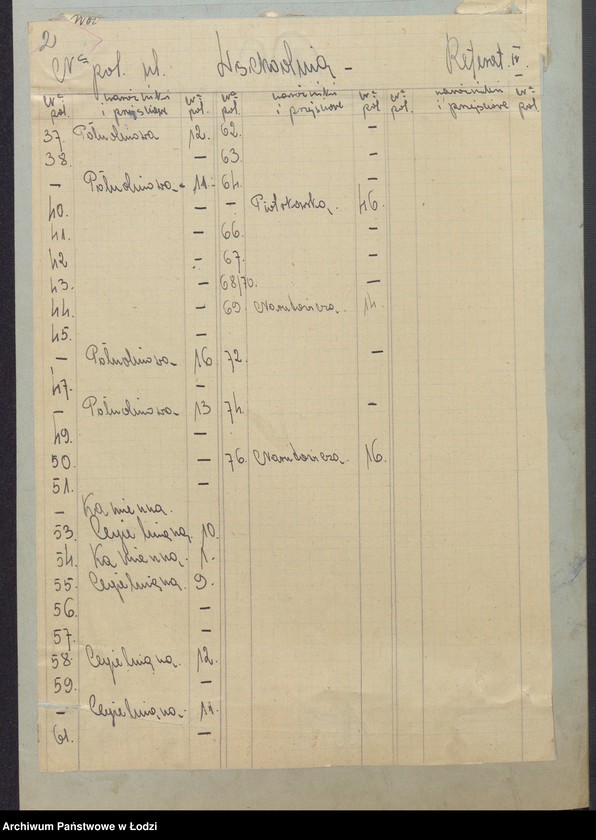 2
Nr pol. ul. Wschodnią - Referat. IV.
Nr pol. narożniki i przejściowe Nr pol. Nr pol. narożniki i przejściowe Nr pol. Nr pol. narożniki i przejściowe Nr pol.
37. Południowa 12. 62. -
38. - 63. -
- Południowa - 11. - 64. -
40. - - Piotrkowska. 46.
41. - 66. -
42 - 67. -
43. - 68/70. -
44. - 69. Narutowicza. 14.
45. -
- Południowa - 16 72. -
47. -
- Południowa - 13 74. -
49. -
50. - 76. Narutowicza. 16.
51. -
- Kamienna.
53. Cegielniana. 10.
54. Kamienna. 1.
55. Cegielniana. 9.
56. -
57. -
58. Cegielniana. 12.
59. -
- Cegielniana. 11.
61. -
Archiwum Państwowe w Łodzi